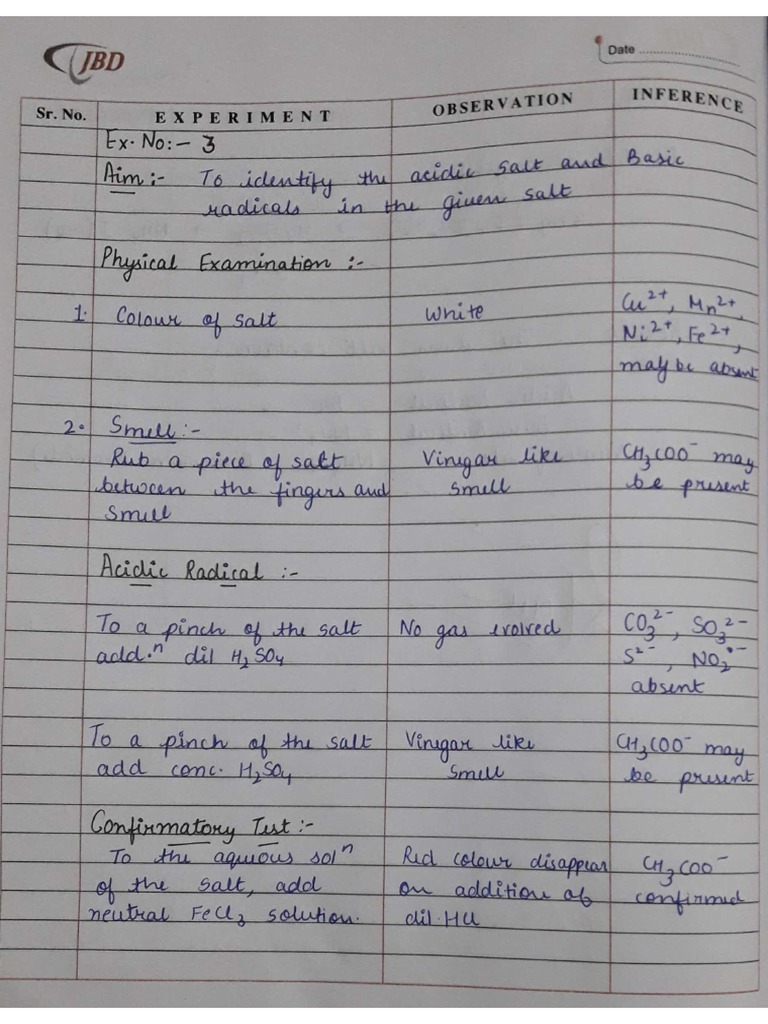 JBD
Date
Sr. No. EXPERIMENT OBSERVATION INFERENCE
Ex. No:- 3
Aim:- To identify the acidic salt and Basic
radicals in the given salt
Physical Examination :-
1. Colour of salt White Cu²⁺, Mn²⁺,
Ni²⁺, Fe²⁺,
may be absent
2. Smell :-
Rub a piece of salt Vinegar like CH₃COO⁻ may
between the fingers and smell be present
smell
Acidic Radical :-
To a pinch of the salt No gas evolved CO₃²⁻, SO₃²⁻
add.ⁿ dil H₂SO₄ S²⁻, NO₂⁻
absent
To a pinch of the salt Vinegar like CH₃COO⁻ may
add conc. H₂SO₄ smell be present
Confirmatory Test :-
To the aqueous solⁿ Red colour disappear CH₃COO⁻
of the salt, add on addition of confirmed
neutral FeCl₃ solution. dil. HCl